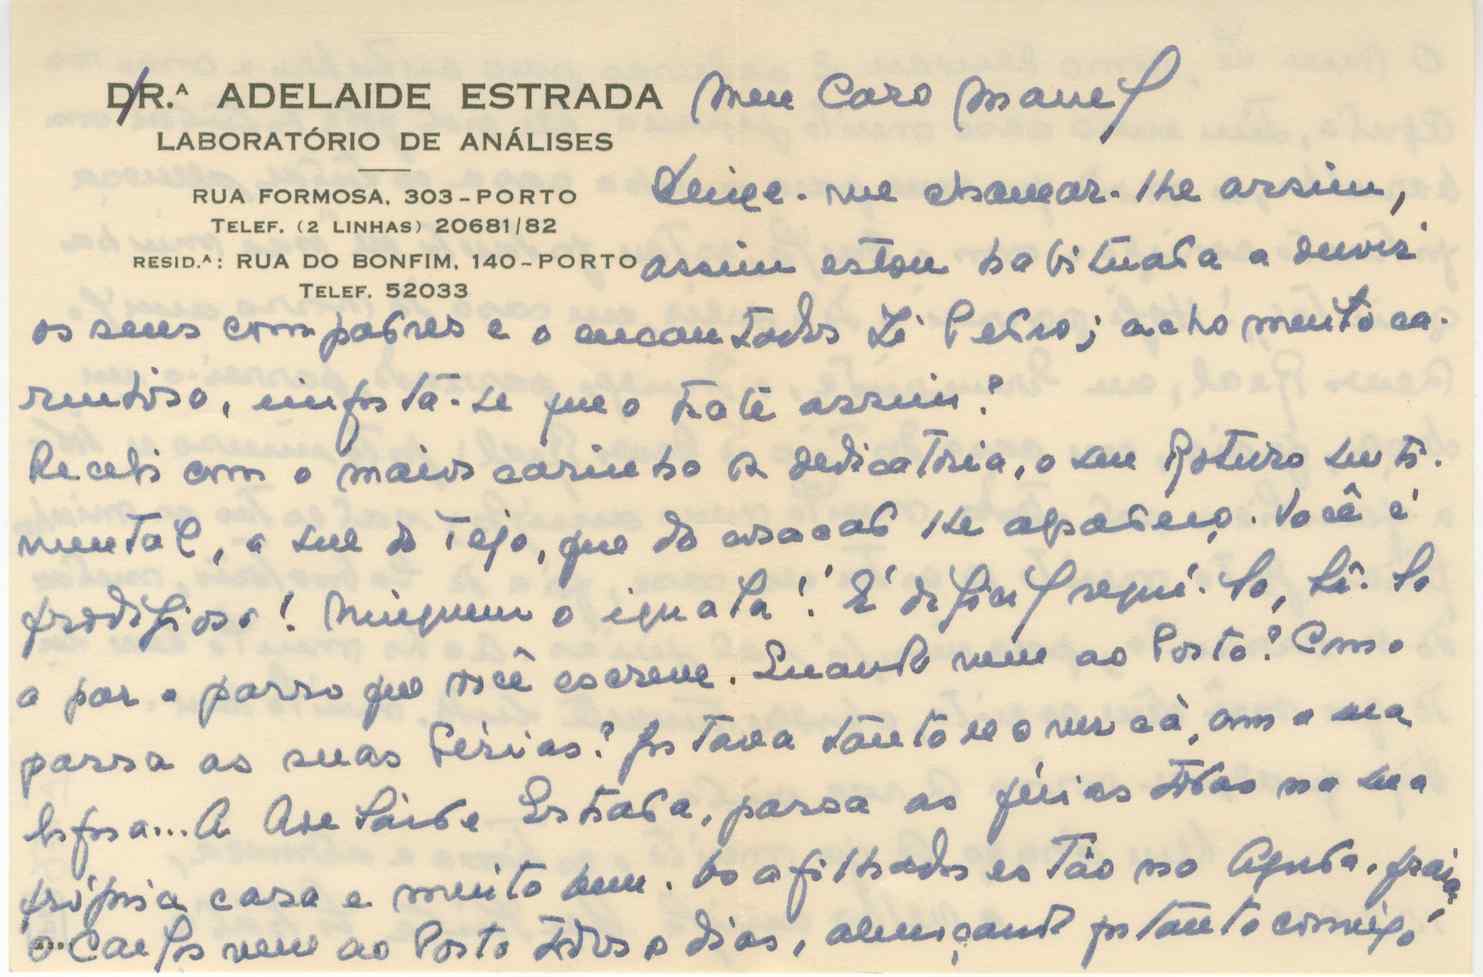 DR.ᴬ ADELAIDE ESTRADA
LABORATÓRIO DE ANÁLISES
RUA FORMOSA, 303-PORTO
TELEF. (2 LINHAS) 20681/82
RESID.ᴬ: RUA DO BONFIM, 140-PORTO
TELEF. 52033
Meu Caro Manuel
Deixe-me chamar-lhe assim,
assim estou habituada a ouvir
os seus compadres e o encantador Zé Pedro; acho muito ca-
rinhoso, importa-se que o trate assim?
Recebi com o maior carinho a dedicatória, o seu Roteiro Senti-
mental, o seu do Tejo, que do coração lhe agradeço. Você é
prodigioso! Ninguem o iguala! É difícil segui-lo, lê-lo
a par e passo que você escreve. Quando vem ao Porto? Como
passa as suas férias? Gostava tanto de o ver cá, com a sua
Esposa... A Adelaide Estrada, passa as férias todas na sua
própria casa e muito bem. Os afilhados estão na Aguda, praia
o Carlos vem ao Porto todos os dias, almoçando portanto comigo,